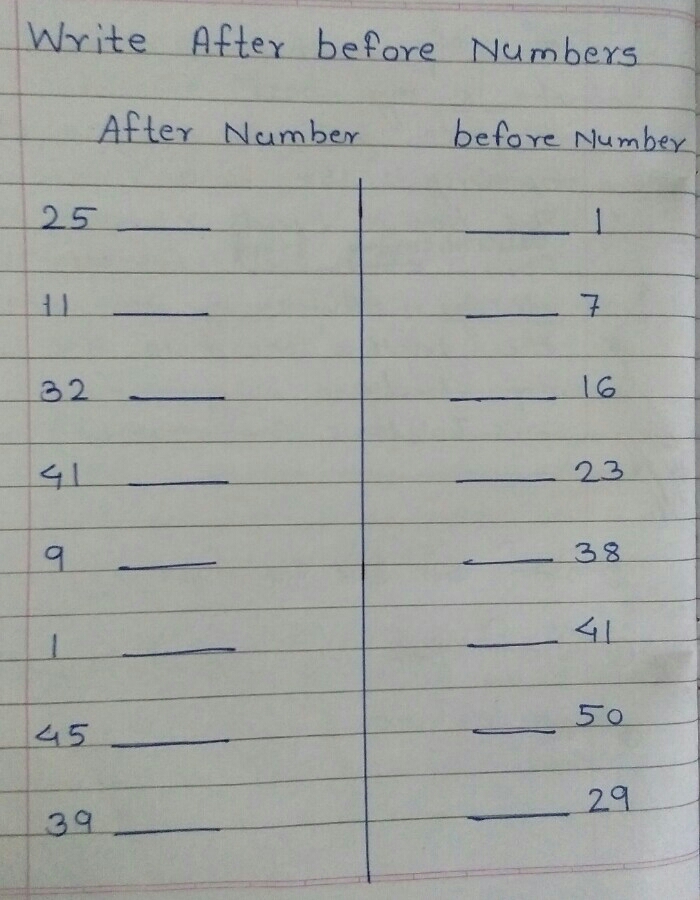 Write After before Numbers
After Number before Number
25 ____ ____ 1
11 ____ ____ 7
32 ____ ____ 16
41 ____ ____ 23
9 ____ ____ 38
1 ____ ____ 41
45 ____ ____ 50
39 ____ ____ 29